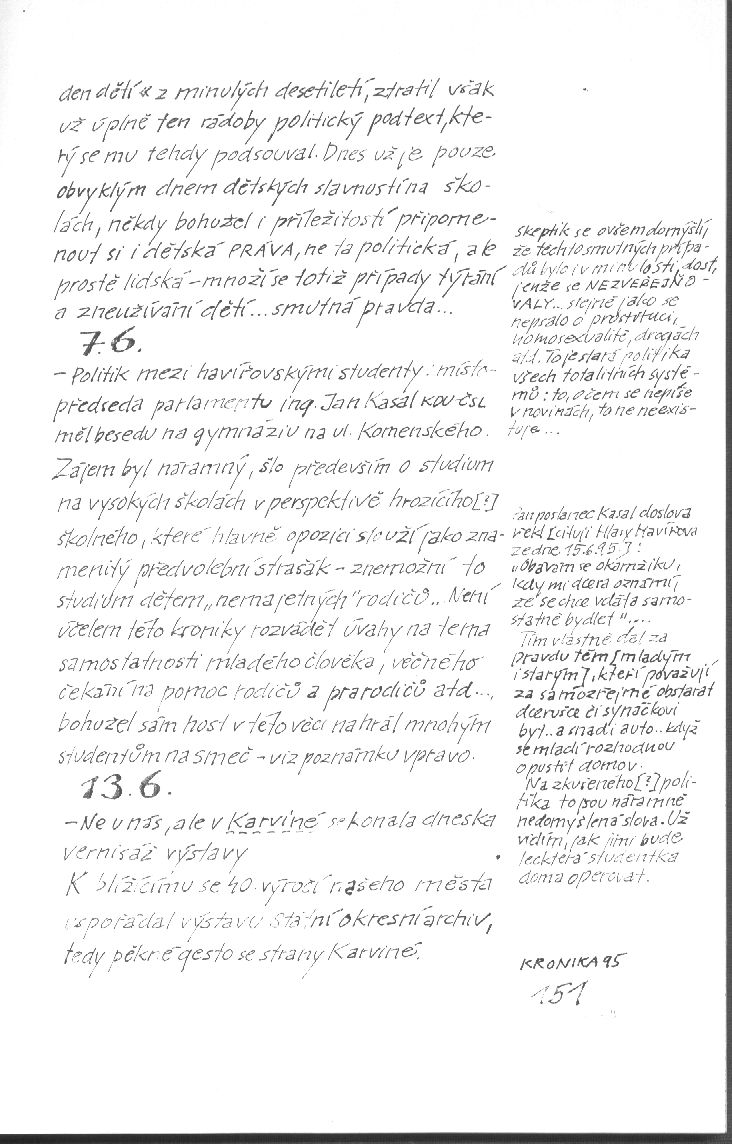 den dětí« z minulých desetiletí, ztratil však
už úplně ten rádoby politický podtext, kte-
rý se mu tehdy podsouval. Dnes už je pouze
obvyklým dnem dětských slavností na ško-
lách, někdy bohužel i příležitostí připome-
nout si i dětská PRÁVA, ne ta politická, ale
prostě lidská – množí se totiž případy týrání
a zneužívání dětí... smutná pravda...
7.6.
– Politik mezi havířovskými studenty: místo-
předseda parlamentu ing. Jan Kasal KDU ČSL
měl besedu na gymnáziu na ul. Komenského.
Zájem byl náramný, šlo především o studium
na vysokých školách v perspektivě hrozícího [?]
školného, které hlavně opozici slouží jako zna-
menitý předvolební strašák – znemožní to
studium dětem „nemajetných" rodičů.. Není
účelem této kroniky rozvádět úvahy na téma
samostatnosti mladého člověka, věčného
čekání na pomoc rodičů a prarodičů atd...,
bohužel sám host v této věci nahrál mnohým
studentům na smeč – viz poznámku vpravo.
13.6.
– Ne u nás, ale v Karviné se konala dneska
vernisáž výstavy
K blížícímu se 40. výročí našeho města
uspořádal výstavu Státní okresní archiv,
tedy pěkné gesto se strany Karviné.
skeptik se ovšem domýšlí,
že těchto smutných přípa-
dů bylo i v minulosti dost,
jenže se NEZVEŘEJŇO-
VALY... stejně jako se
nepsalo o prostituci,
homosexualitě, drogách
atd. To je stará politika
všech totalitních systé-
mů: to, o čem se nepíše
v novinách, to ne neexis-
tuje...
Pan poslanec Kasal doslova
řekl [cituji Hlasy Havířova
ze dne 15.6.95]:
„Obávám se okamžiku,
kdy mi dcera oznámí,
že se chce vdát a samo-
statně bydlet"....
Tím vlastně dal za
pravdu těm [mladým
i starým], kteří považují
za samozřejmé obstarat
dcerušce či synáčkovi
byt.. a snad i auto.. když
se mladí rozhodnou
opustit domov.
Na zkušeného [?] poli-
tika to jsou náramně
nedomyšlená slova. Už
vidím, jak jimi bude
leckterá studentka
doma operovat.
KRONIKA 95
151